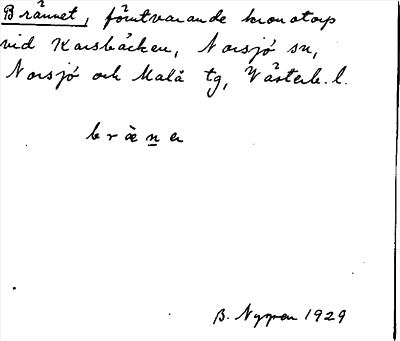 Brännet, förutvarande kronotorp
vid Karsbäcken, Norsjö sn,
Norsjö och Malå tg, Västerb. l.
bräner
B. Nygren 1929